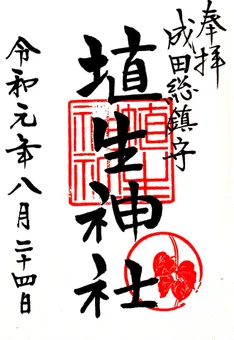 奉拝
成田総鎮守
埴生神社
埴生神社
令和元年八月二十四日